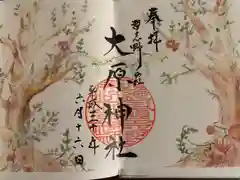 奉拝
習志野
大原神社
平成三十年
六月十六日